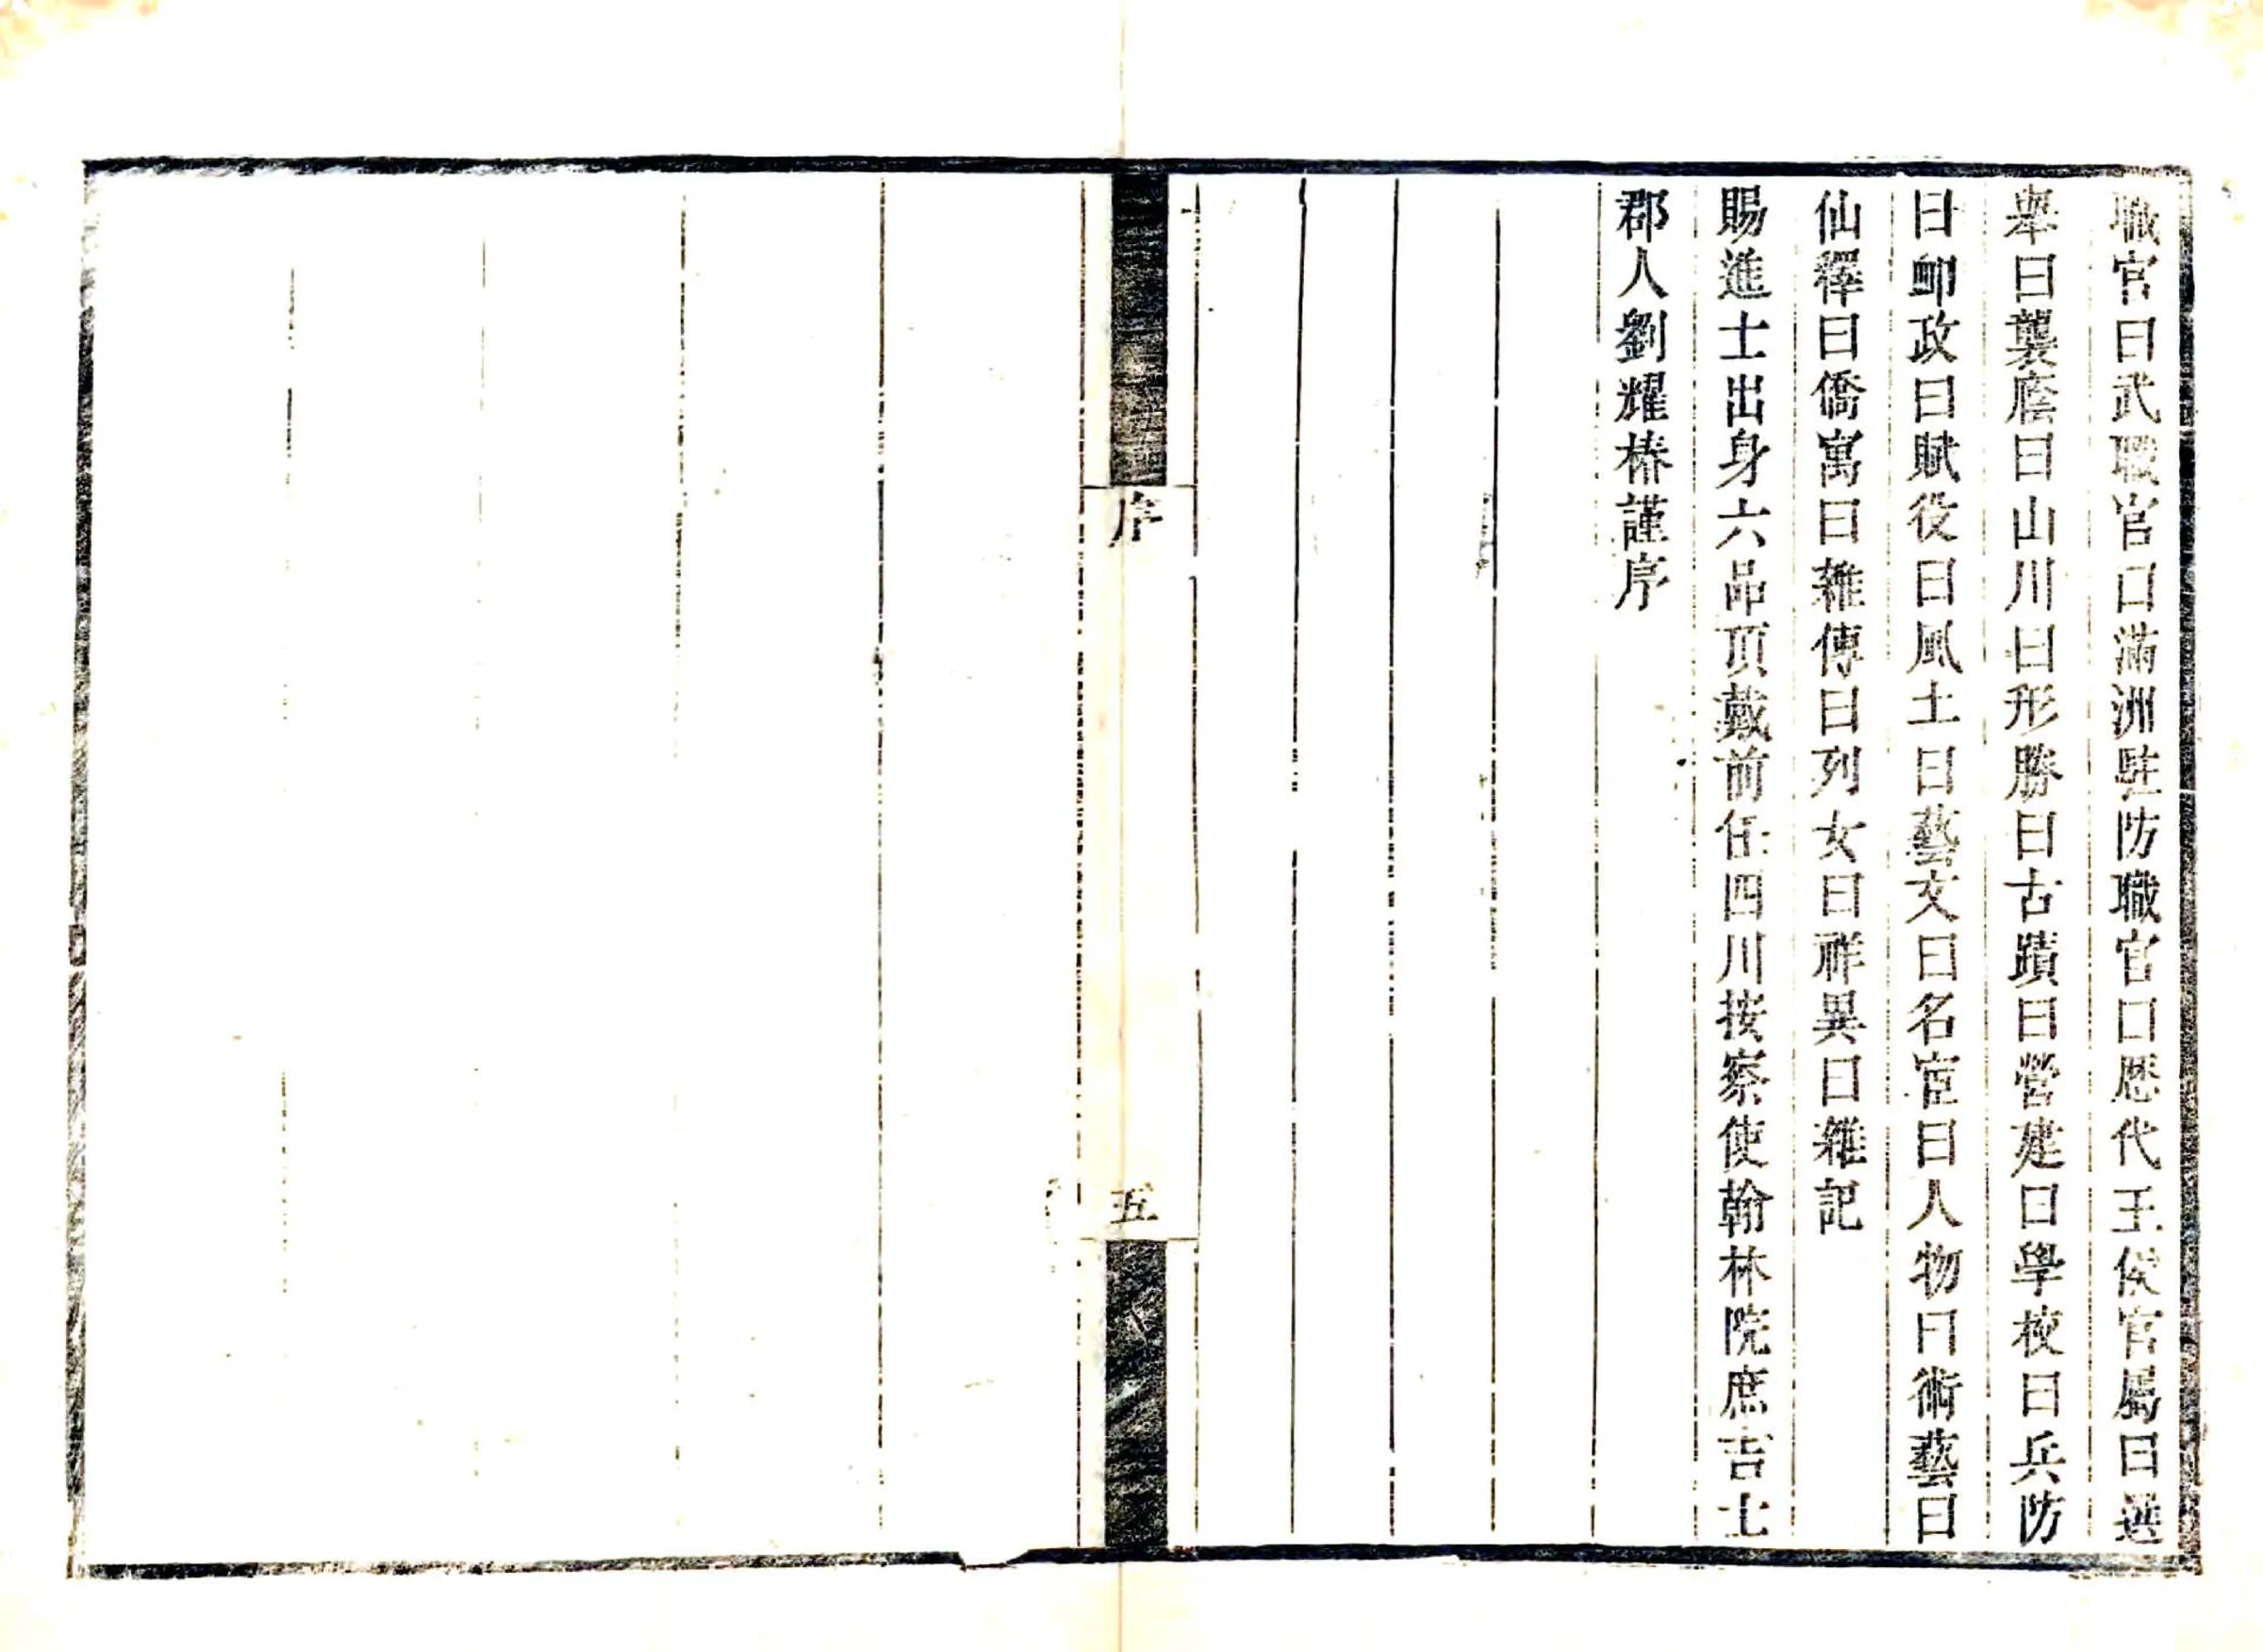 職官曰武職官曰滿洲駐防職官曰歷代王侯官屬曰選
舉曰襲廕曰山川曰形勝曰古蹟曰營建曰學校曰兵防
曰䘏政曰賦役曰風土曰藝文曰名宦曰人物曰術藝曰
仙釋曰僑寓曰雜傳曰列女曰祥異曰雜記
賜進士出身六品頂戴前任四川按察使翰林院庶吉士
郡人劉耀椿謹序
序
五